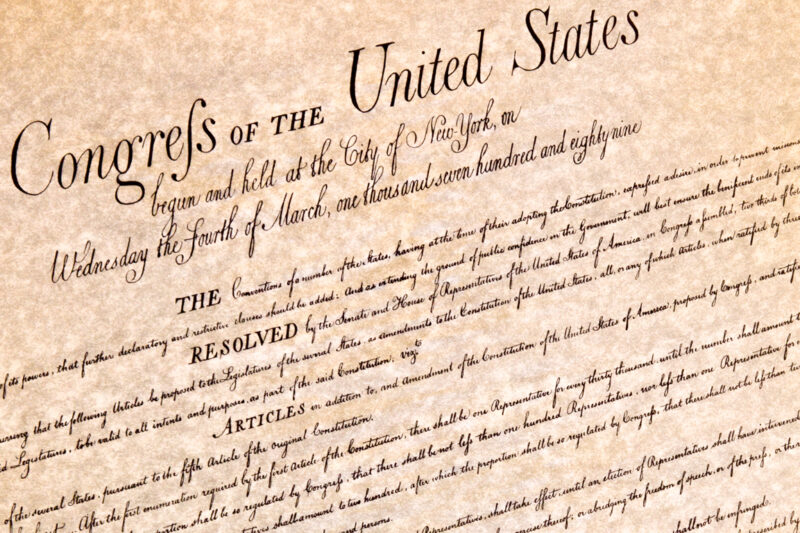 Congreſs OF THE United States
begun and held at the City of New-York, on
Wednesday the Fourth of March, one thousand seven hundred and eighty nine
THE Conventions of a number of the States, having at the time of their adopting the Constitution, expreſsed a desire, in order to prevent
of its powers, that further declaratory and restrictive clauses should be added: And as extending the ground of public confidence in the Government, will best ensure the beneficent ends of its
RESOLVED by the Senate and House of Representatives of the United States of America, in Congreſs aſsembled, two thirds of
that the following Articles be proposed to the Legislatures of the several States, as amendments to the Constitution of the United States, all, or any of which Articles, when ratified by three
Legislatures, to be valid to all intents and purposes, as part of the said Constitution, vizt.
ARTICLES in addition to, and amendment of the Constitution of the United States of America, proposed by Congreſs, and
of the several States, pursuant to the fifth Article of the original Constitution.
After the first enumeration required by the first Article of the Constitution, there shall be one Representative for every thirty thousand, until the number shall amount
shall be so regulated by Congreſs, that there shall be not leſs than one hundred Representatives, nor leſs than one Representative for
shall amount to two hundred, after which the proportion shall be so regulated by Congreſs, that there shall not be leſs than two
persons.
Representatives, shall take effect, until an election of Representatives shall have intervened
thereof; or abridging the freedom of speech, or of the preſs, or
shall not be infringed.